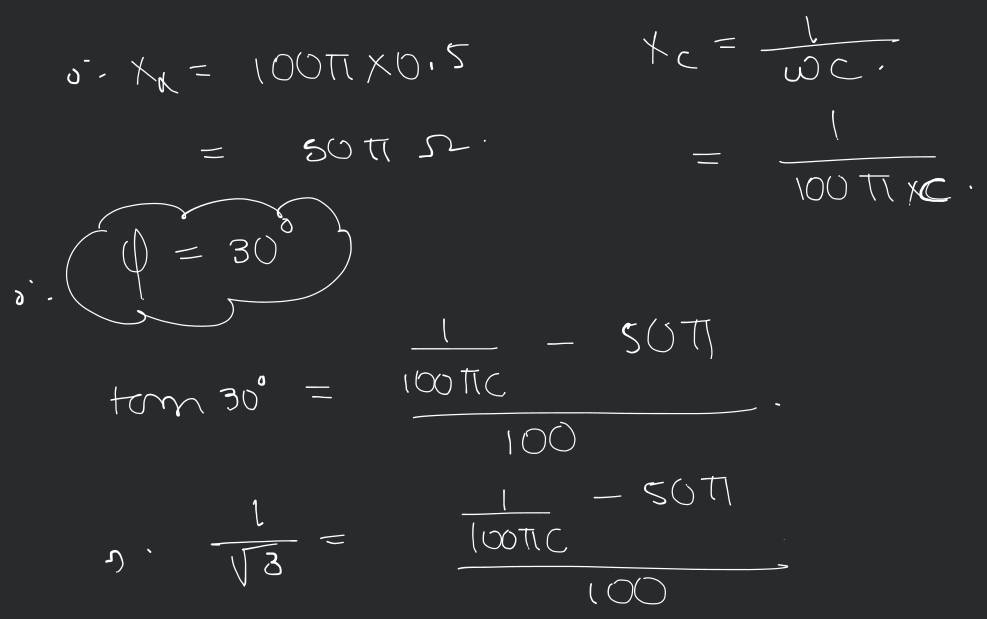 ∴ X_L = 100π × 0.5
= 50π Ω.
X_C = 1/ωC.
= 1/(100π × C).
∴ φ = 30°
tan 30° = (1/(100πC) − 50π)/100.
1/√3 = (1/(100πC) − 50π)/100